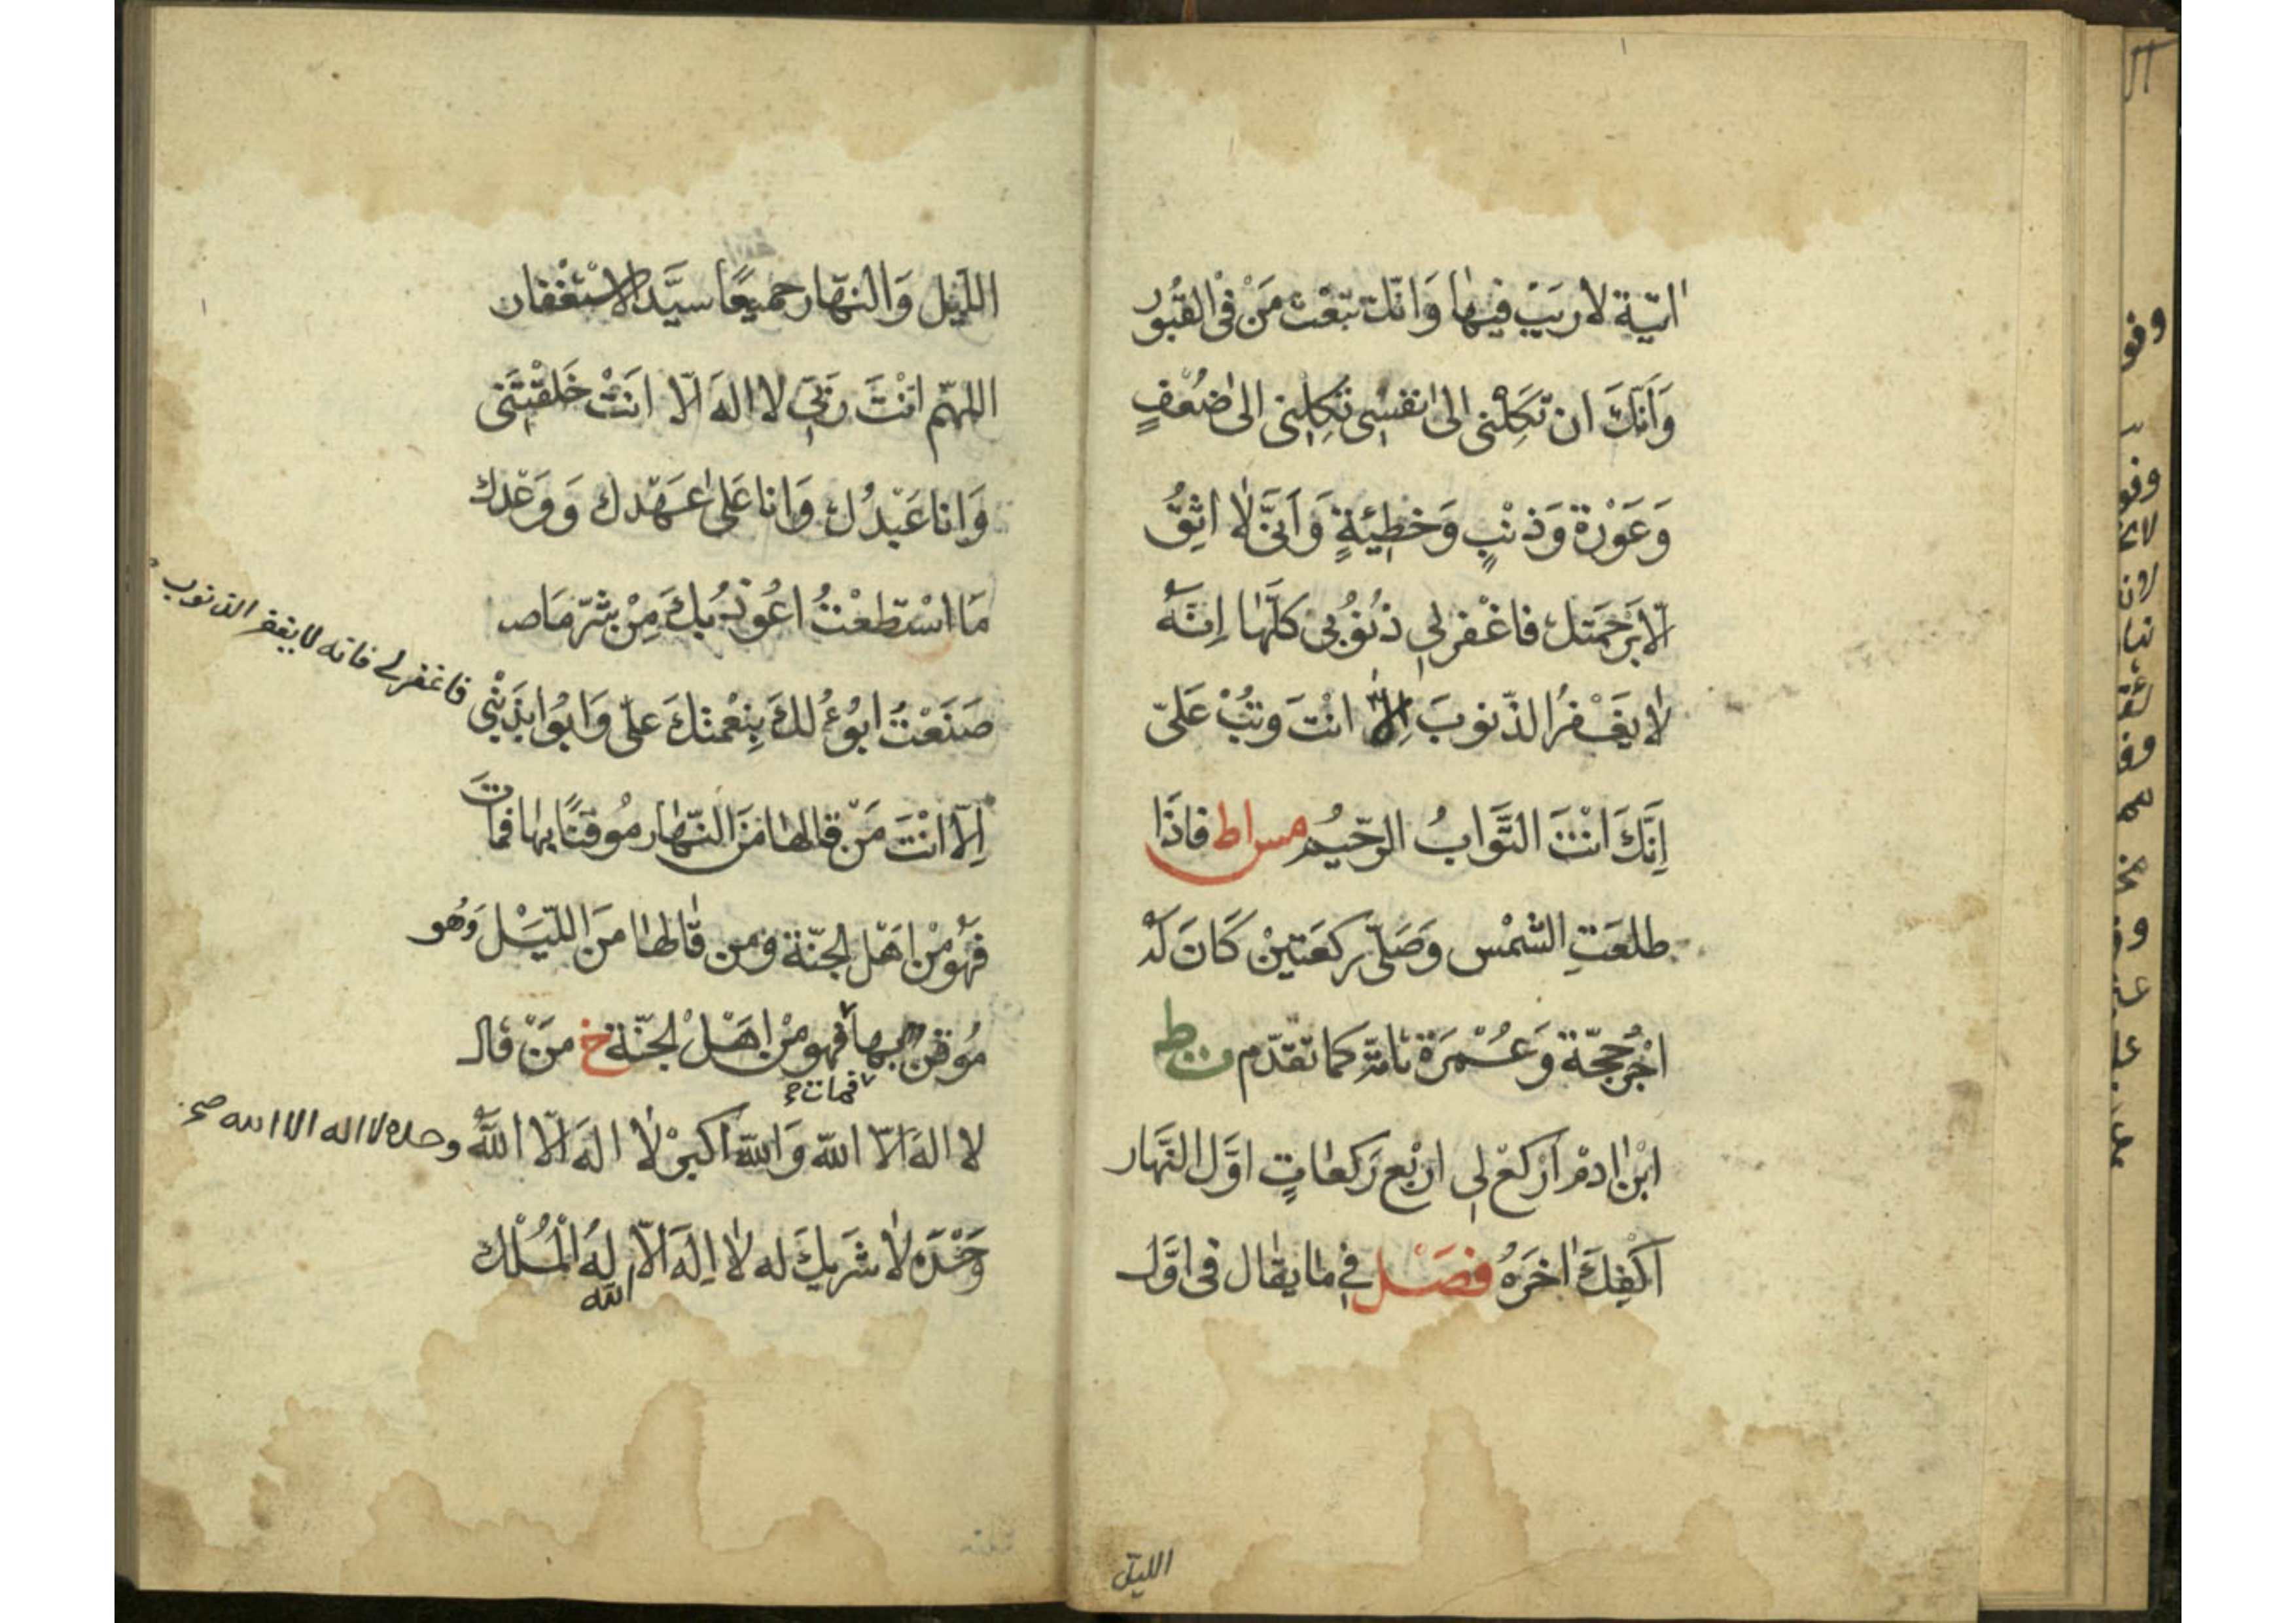 اتية لا ريب فيها وانك تبعث من في القبور
وَاَنّكَ ان تكلنى الى نفسى تكلنى الى ضعفٍ
وَعَوْرة وَذنْبٍ وَخطيئةٍ وَاَنّى لا اثقُ
الّا برَحمتك فاغْفر لى ذنُوبى كلّها اِنّهُ
لا يغْفرُ الذّنوبَ اِلّا انتَ وتبْ عَلىّ
اِنَّكَ انْتَ التَّوابُ الرّحيم مس اط فاذَا
طلعَتِ الشمْس وَصَلّى ركعَتينْ كَانَ لهُ
اجْرُ حجّة وَعُمْرَة تامّة كما تقدّم ت ط
ابْن ادمْ اركعْ لى اربْع رَكعاتٍ اوّل النّهار
اَكْفِكَ اٰخرَهُ فصَل في ما يقال فى اوّل
الليل
الليْل وَالنهّار جميعًا سيّد الاستغْفار
اللهّم انْتَ ربّى لا الهَ الّا انتَ خَلقْتَنى
وَانا عَبْدُك وَانا عَلى عَهْدك وَوَعْدك
مَا اسْتطعْتُ اعُوذ بكَ مِنْ شرّ مَا صـ
صَنَعْتُ ابُوءُ لكَ بِنِعْمتكَ علىّ وَابُوا بذَنْبى فاغفر لى فانه لا يغفر الذنوب
اِلّا انْتَ مَنْ قالها منَ النّهار مُوقنًا بها فماتَ
فهُو منْ اهْل الجنّة ومن قالها منَ الليّل وَهُو
مُوقن بها فهو منْ اهَل الجنّة خ منْ قال
فمات صح
لا الهَ الّا اللّه وَاللّه اكبرْ لا الهَ الّا اللّهُ وحده لا اله الا الله صح
وَحْدَه لا شَريكَ له لا اِلهَ الّا الله لهُ المُلك